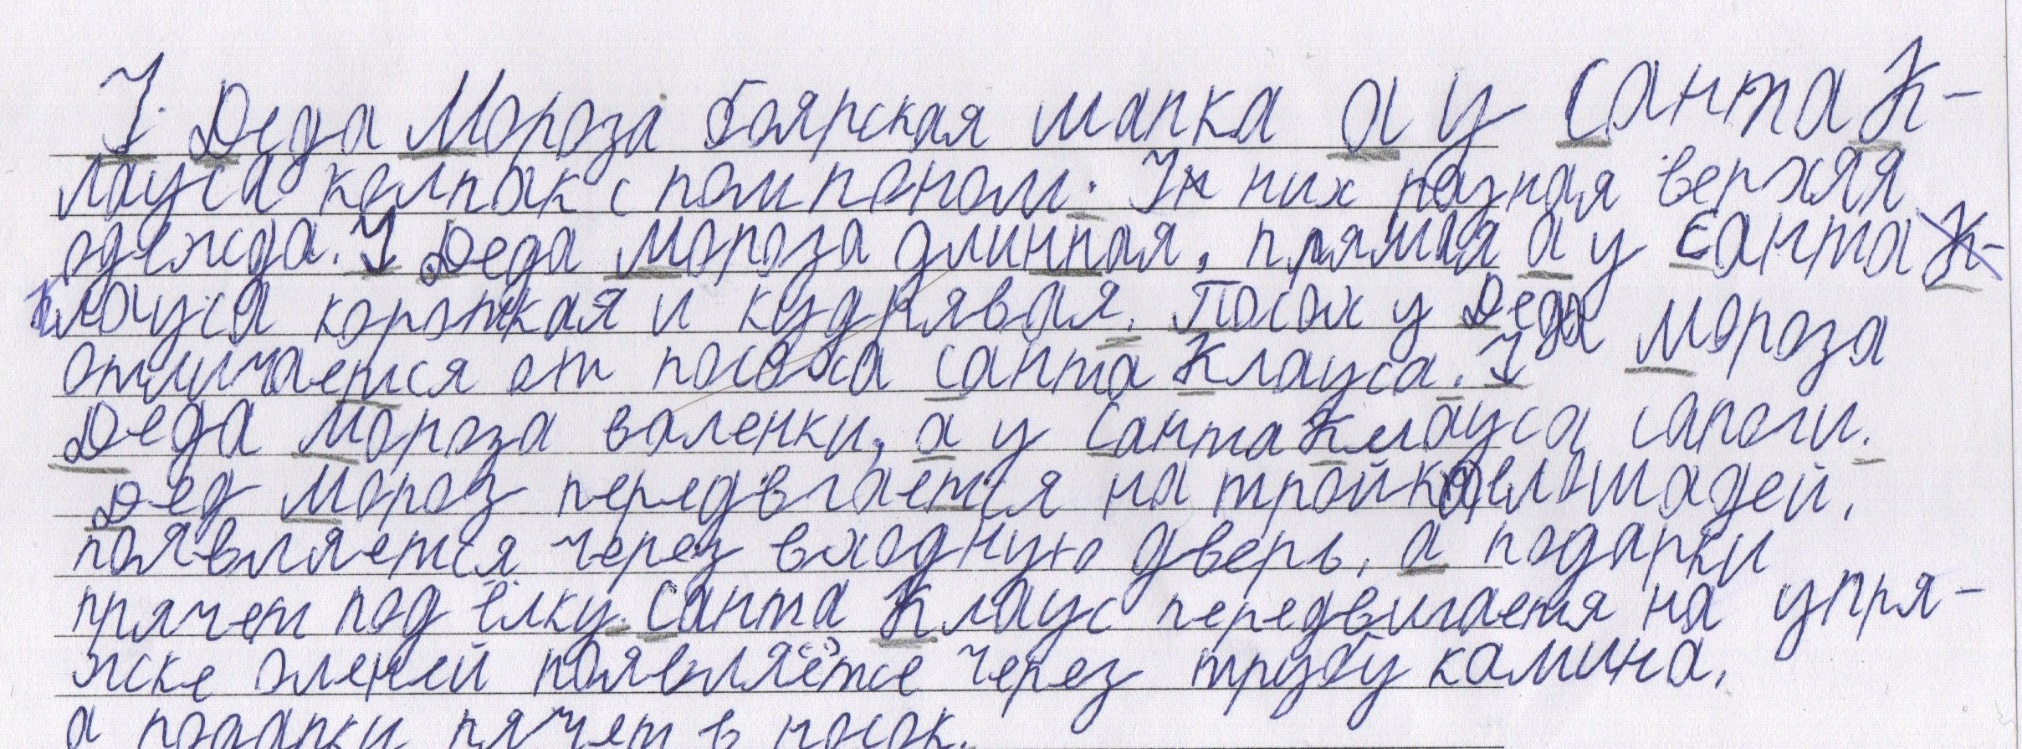 У Деда Мороза боярская шапка а у Санта К-
лауса колпак с помпоном. У них разная верхяя
одежда. У Деда Мороза длинная, прямая а у Санта К-
Клауса короткая и кудрявая. Посох у Деда Мороза
отличается от посоха Санта Клауса. У
Деда Мороза валенки, а у Санта Клауса сапоги.
Дед Мороз передвгается на тройке лошадей,
появляется через входную дверь, а подарки
прячет под ёлку. Санта Клаус передвигается на упря-
жске оленей появляётсе через трубу камина,
а подарки пячет в носок.